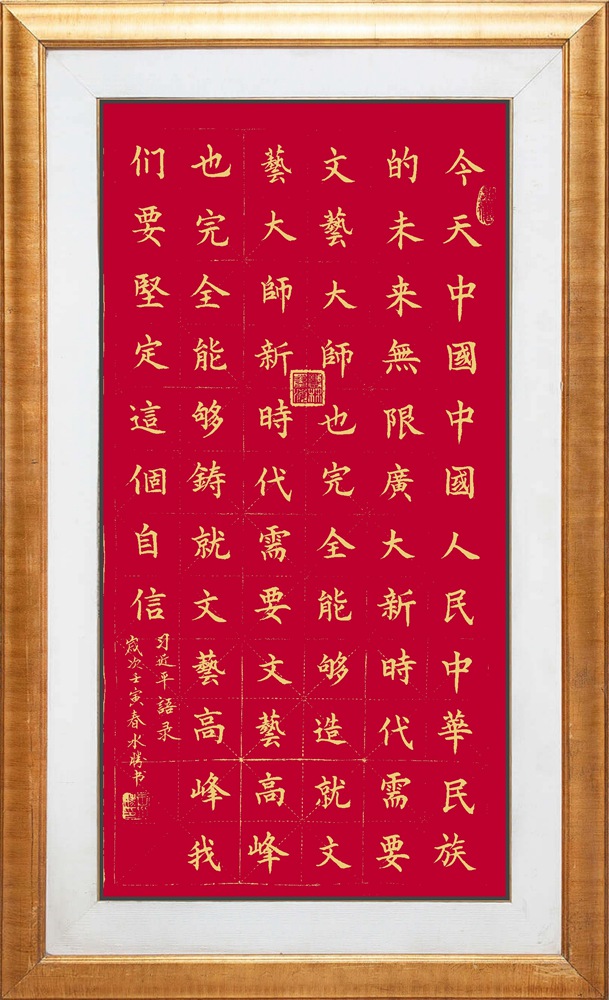 今天中國中國人民中華民族
的未来無限廣大新時代需要
文藝大師也完全能够造就文
藝大師新時代需要文藝高峰
也完全能够鋳就文藝高峰我
们要堅定這個自信
习近平語录
歲次壬寅春水勝书